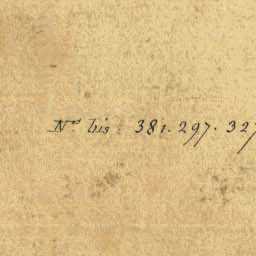 Nos bis 381. 297. 327